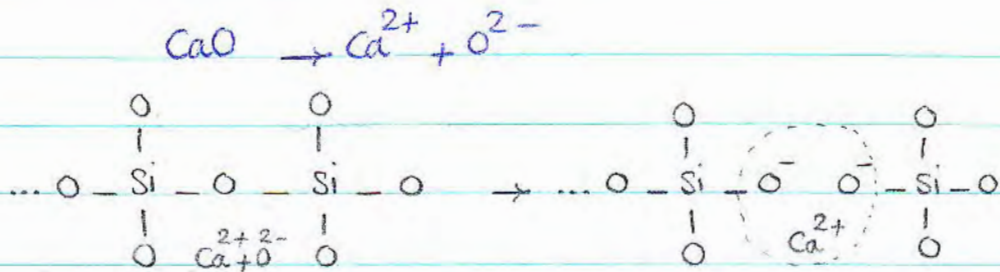 CaO → Ca²⁺ + O²⁻
O O O O
... O – Si – O – Si – O → ... O – Si – O⁻ O⁻ – Si – O
O Ca²⁺ + O²⁻ O O Ca²⁺ O